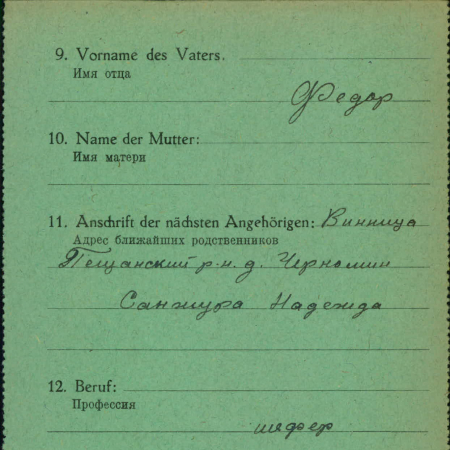 9. Vorname des Vaters.
Имя отца
Федор
10. Name der Mutter:
Имя матери
11. Anschrift der nächsten Angehörigen: Винница
Адрес ближайших родственников
Пещанский р-н. д. Черномин
Санжура Надежда
12. Beruf:
Профессия
шофер